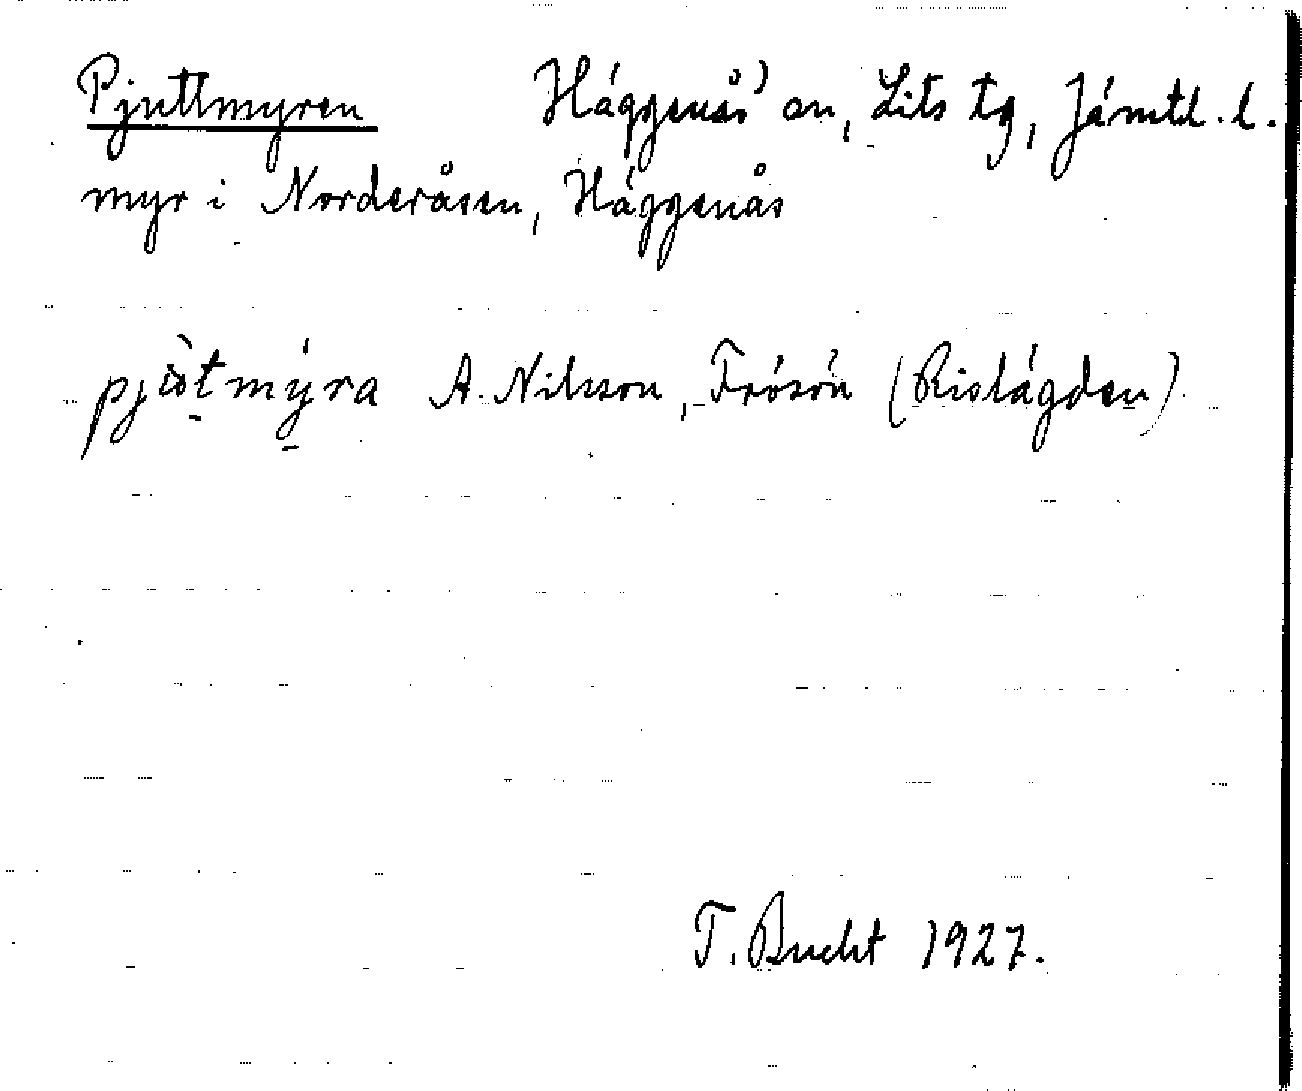 Pjuttmyren Häggenås' sn, Lits tg, Jämtl. l.
myr i Norderåsen, Häggenås
A. Nilsson, Frösön (Rislägden).
T. Bucht 1927.